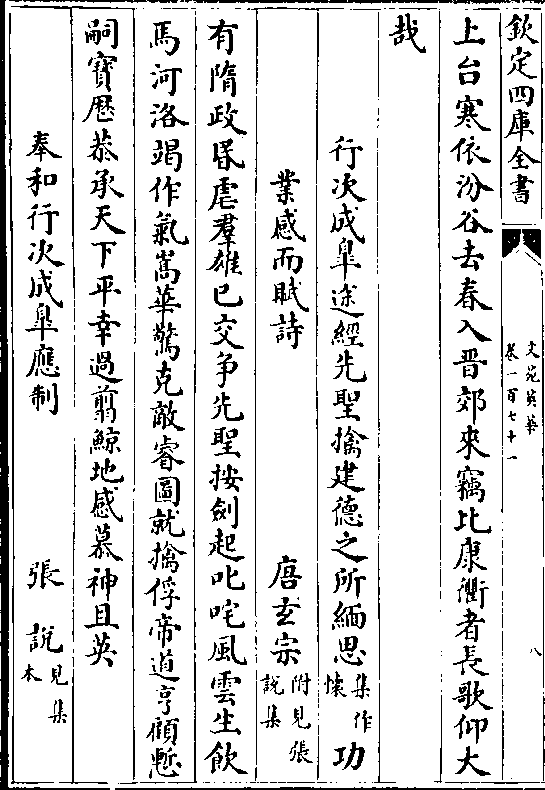 欽定四庫全書
文苑英華
卷一百七十一
八
上台寒依汾谷去春入晋郊來竊比康衢者長歌仰大
哉
行次成臯途經先聖擒建德之所緬思集作懷功
業感而賦詩 唐玄宗附見張說集
有隋政昬虐羣雄巳交爭先聖按劍起叱咤風雲生飲
馬河洛竭作氣嵩華驚克敵睿圖就擒俘帝道亨顧慙
嗣寶歷恭承天下平幸過翦鯨地感慕神且英
奉和行次成臯應制 張說見集本